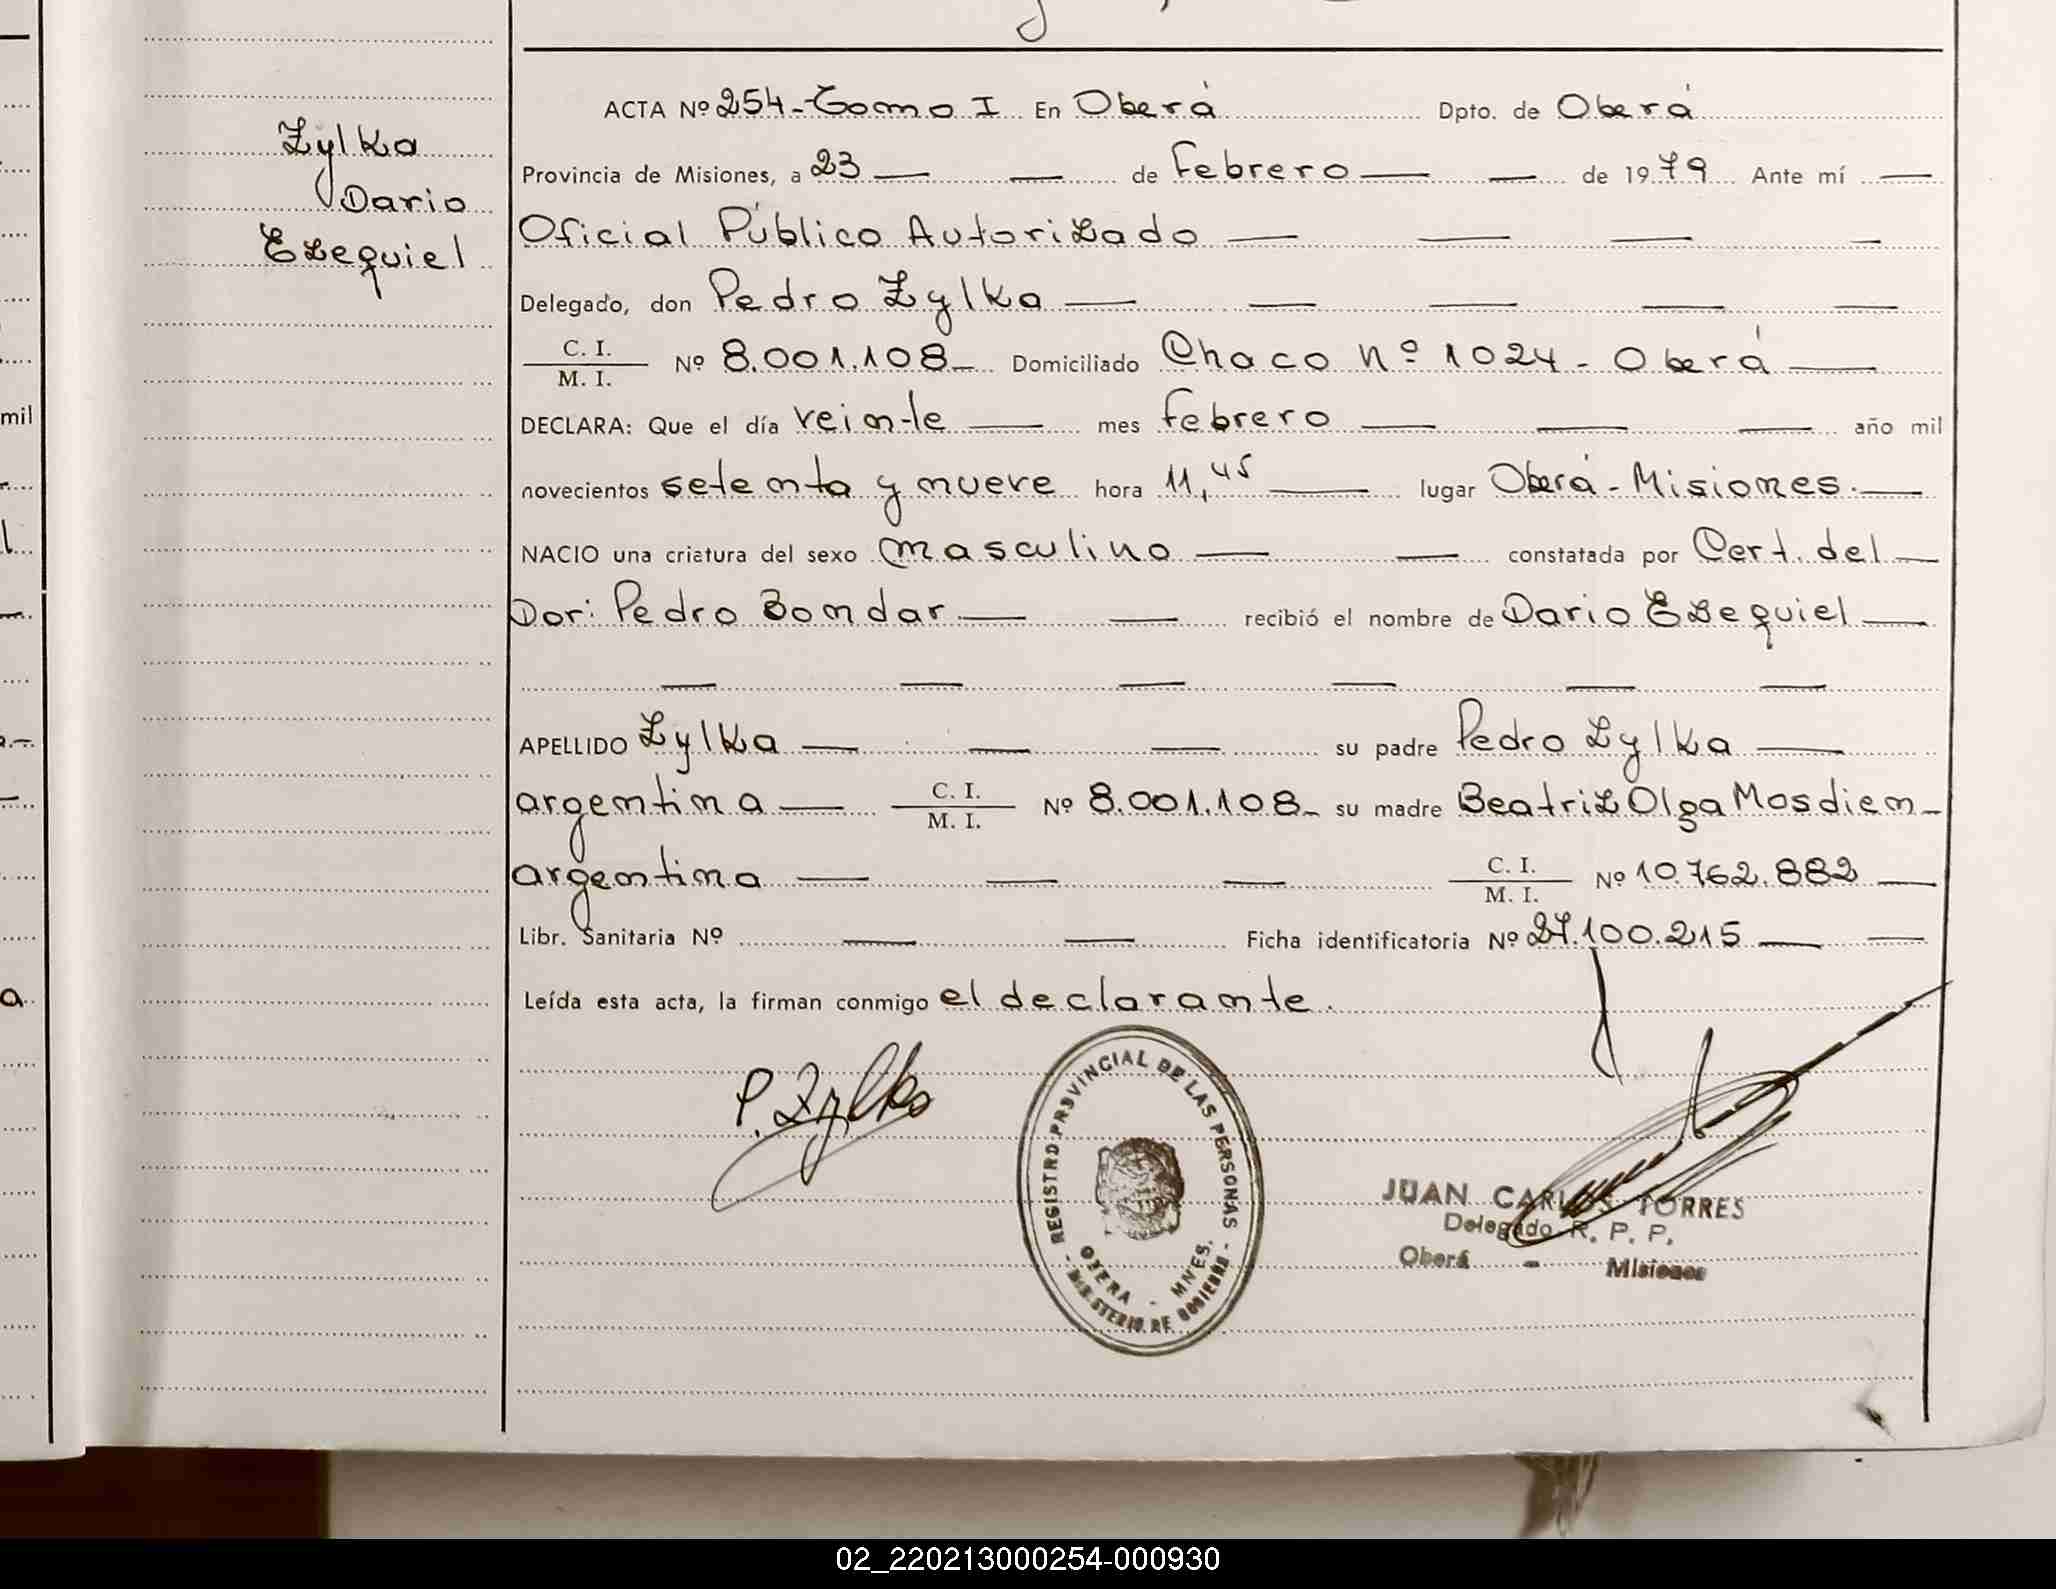 Zylka
Dario
Ezequiel
ACTA Nº 254 - Tomo I En Oberá Dpto. de Oberá
Provincia de Misiones, a 23 — — de Febrero — — de 1979 Ante mí —
Oficial Público Autorizado — — — —
Delegado, don Pedro Zylka — — — — —
C. I.
M. I. Nº 8.001.108 — Domiciliado Chaco Nº 1024 - Oberá —
DECLARA: Que el día veinte — mes febrero — — — año mil
novecientos setenta y nueve hora 11,45 — lugar Oberá - Misiones. —
NACIO una criatura del sexo masculino — — constatada por Cert. del —
Dor: Pedro Bondar — — recibió el nombre de Dario Ezequiel —
— — — — — —
APELLIDO Zylka — — — su padre Pedro Zylka —
argentina — C. I.
M. I. Nº 8.001.108 - su madre Beatriz Olga Mosdien -
argentina — — — C. I.
M. I. Nº 10.762.882 —
Libr. Sanitaria Nº — — Ficha identificatoria Nº 27.100.215 — —
Leída esta acta, la firman conmigo el declarante.
P. Zylka
- REGISTRO PROVINCIAL DE LAS PERSONAS -
OBERA - MNES.
MINISTERIO DE GOBIERNO
JUAN CARLOS TORRES
Delegado R. P. P.
Oberá - Misiones
mil
l
a
02_220213000254-000930